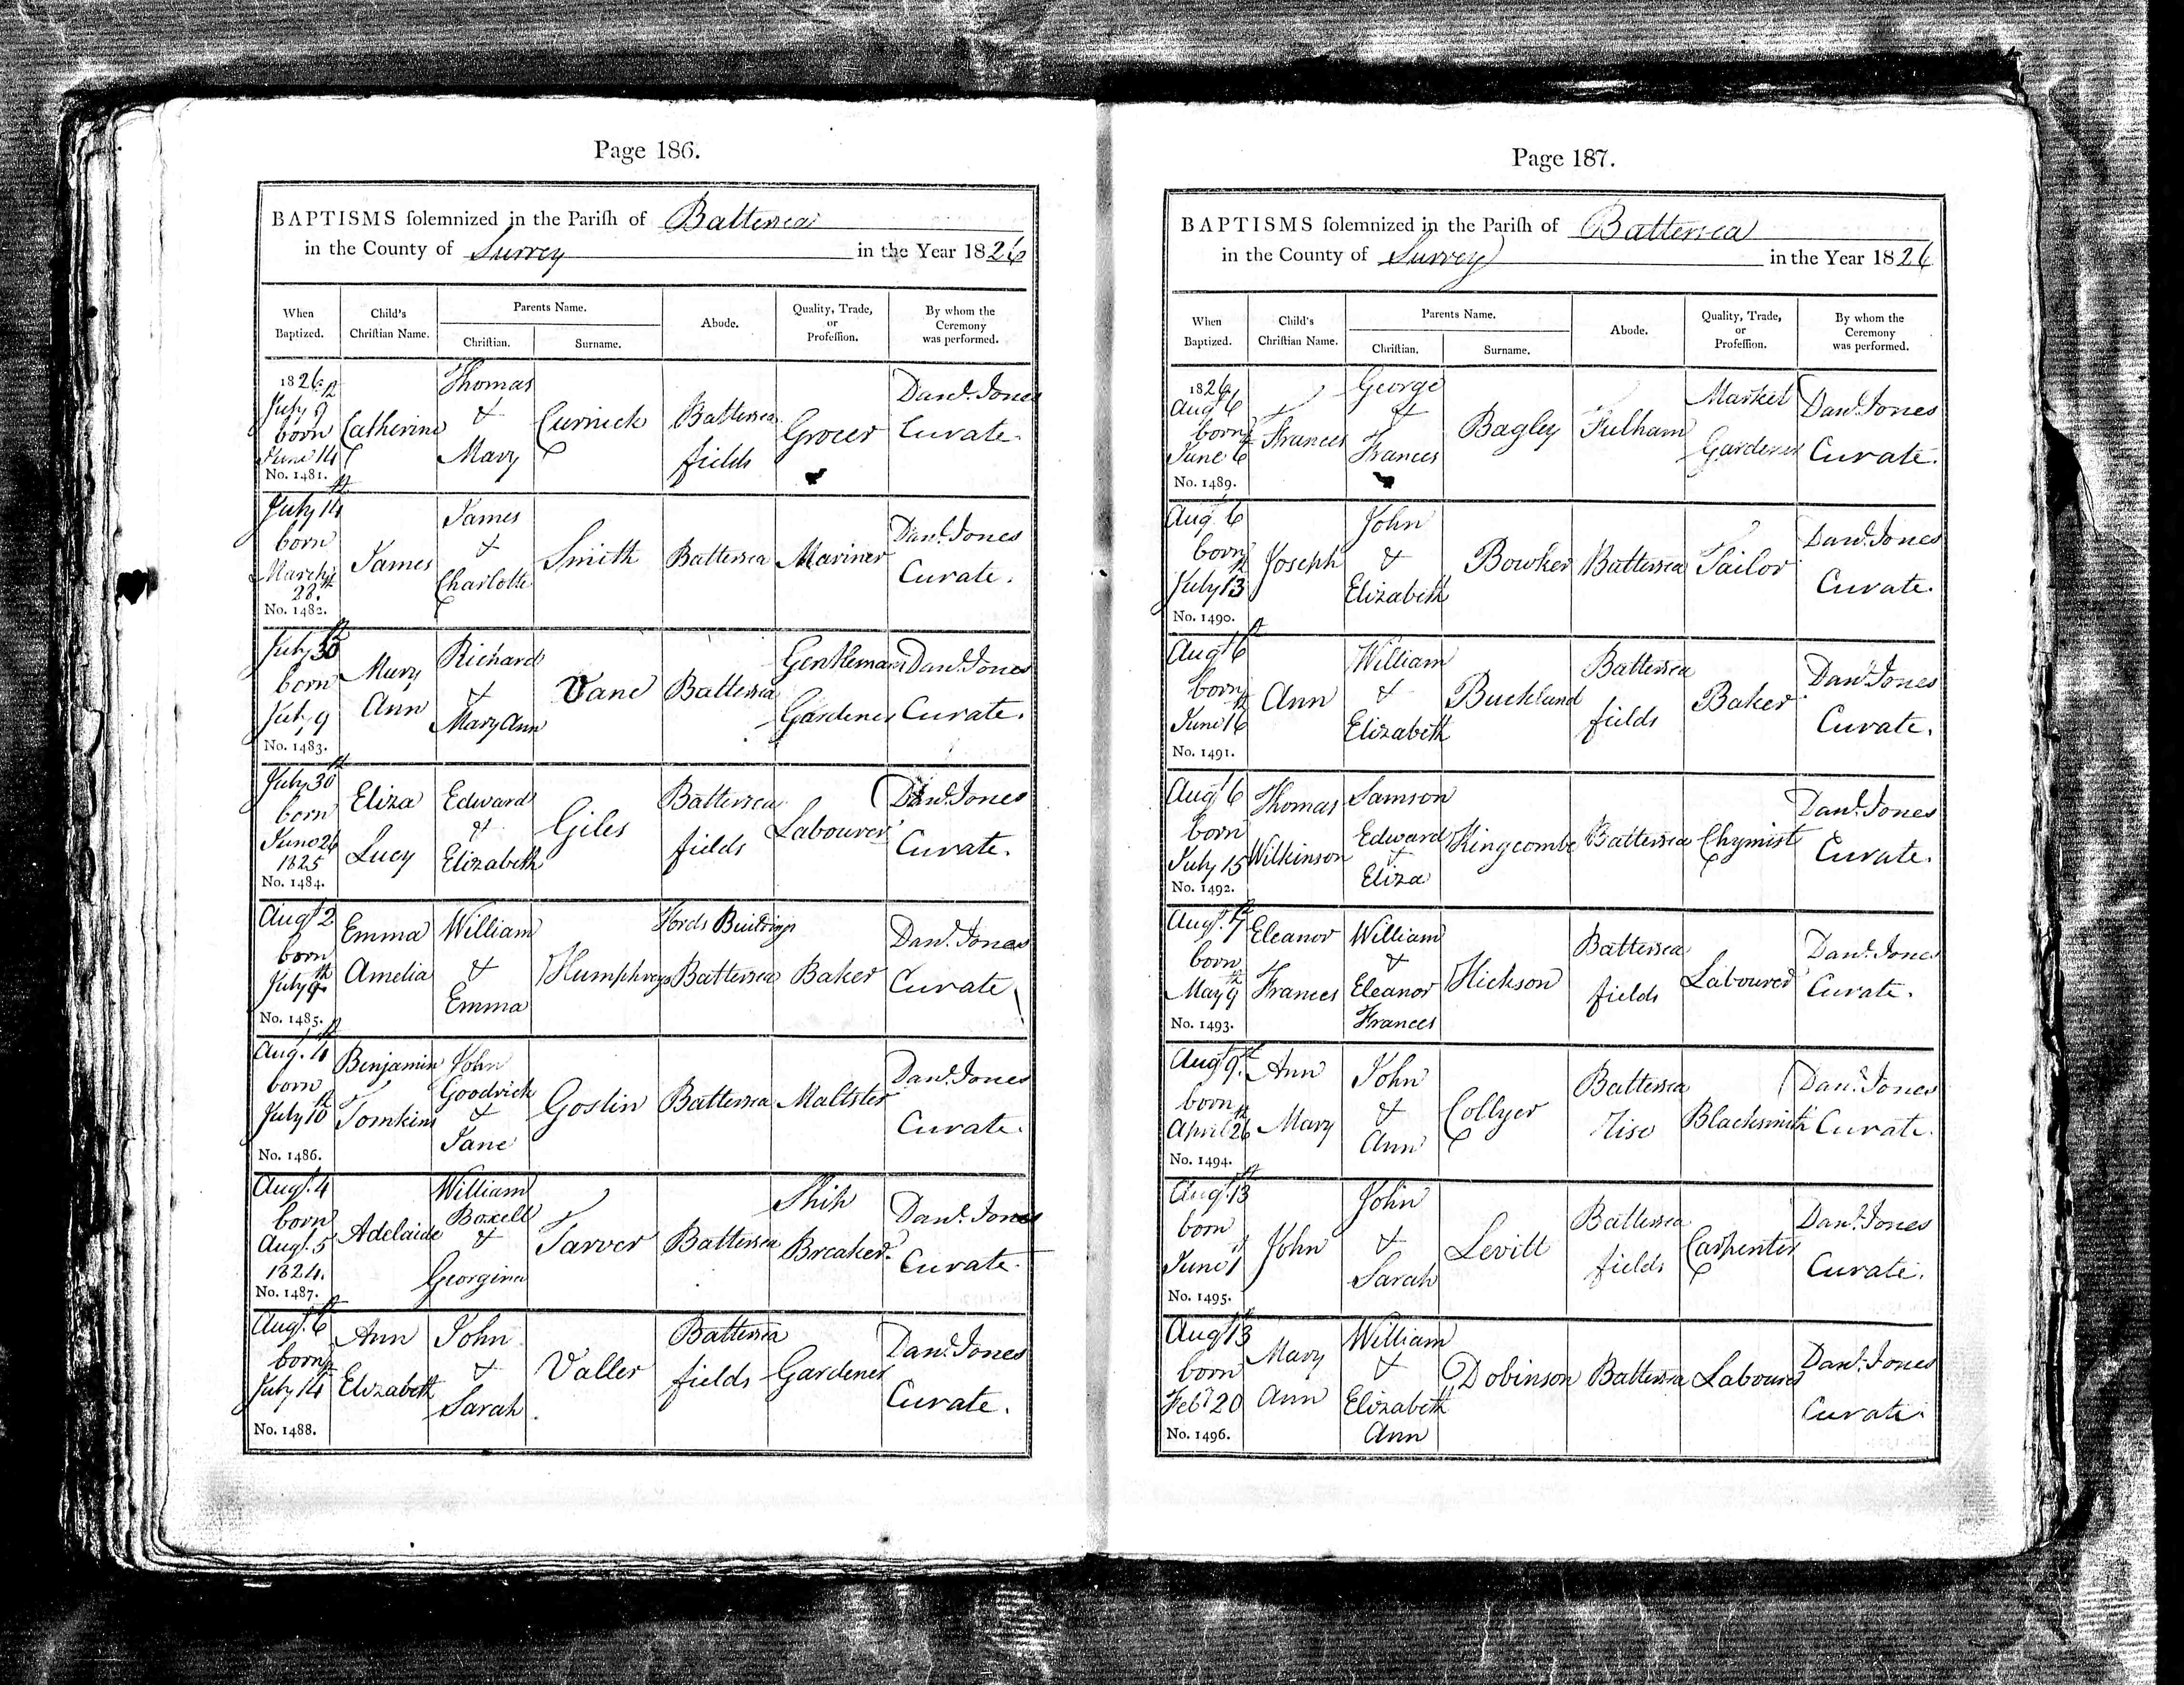 Page 186.
BAPTISMS solemnized in the Parish of Battersea
in the County of Surrey in the Year 1826
When Baptized. Child's Christian Name. Parents Name. Christian. Surname. Abode. Quality, Trade, or Profession. By whom the Ceremony was performed.
1826. July 9th born June 14 No. 1481. Catherine Thomas & Mary Currick Battersea fields Grocer Danl. Jones Curate.
July 14th born March 28th No. 1482. James James & Charlotte Smith Battersea Mariner Danl. Jones Curate.
July 30th born July 9 No. 1483. Mary Ann Richard & Mary Ann Vane Battersea Gentleman Gardener Danl. Jones Curate.
July 30th born June 26 1825 No. 1484. Eliza Lucy Edward & Elizabeth Giles Battersea fields Labourer Danl. Jones Curate.
Augt 2 born July 9th No. 1485. Emma Amelia William & Emma Humphreys Fords Buildings Battersea Baker Danl. Jones Curate
Aug. 4th born July 10th No. 1486. Benjamin Tomkins John Goodrick & Jane Goslin Battersea Maltster Danl. Jones Curate.
Augt. 4 born Augt. 5 1824. No. 1487. Adelaide William Boxell & Georgina Tarver Battersea Ship Breaker. Danl. Jones Curate.
Augt. 6th born July 14th No. 1488. Ann Elizabeth John & Sarah Valler Battersea fields Gardener Danl. Jones Curate.
Page 187.
BAPTISMS solemnized in the Parish of Battersea
in the County of Surrey in the Year 1826
When Baptized. Child's Christian Name. Parents Name. Christian. Surname. Abode. Quality, Trade, or Profession. By whom the Ceremony was performed.
1826 Augt 6 born June 6th No. 1489. Frances George & Frances Bagley Fulham Market Gardener Danl. Jones Curate.
Augt 6 born July 13th No. 1490. Joseph John & Elizabeth Bowker Battersea Tailor Danl. Jones Curate.
Augt 6th born June 16th No. 1491. Ann William & Elizabeth Buckland Battersea fields Baker Danl. Jones Curate.
Augt 6 born July 15 No. 1492. Thomas Wilkinson Samson Edward & Eliza Kingcombe Battersea Chymist Danl. Jones Curate.
Augt. 7th born May 9th No. 1493. Eleanor Frances William & Eleanor Frances Hickson Battersea fields Labourer Danl. Jones Curate.
Augt 9th. born April 26th No. 1494. Ann Mary John & Ann Collyer Battersea Rise Blacksmith Danl. Jones Curate.
Augt. 13th born June 1st No. 1495. John John & Sarah Levitt Battersea fields Carpenter Danl. Jones Curate.
Augt 13th born Feby 20 No. 1496. Mary Ann William & Elizabeth Ann Dobinson Battersea Labourer Danl. Jones Curate.